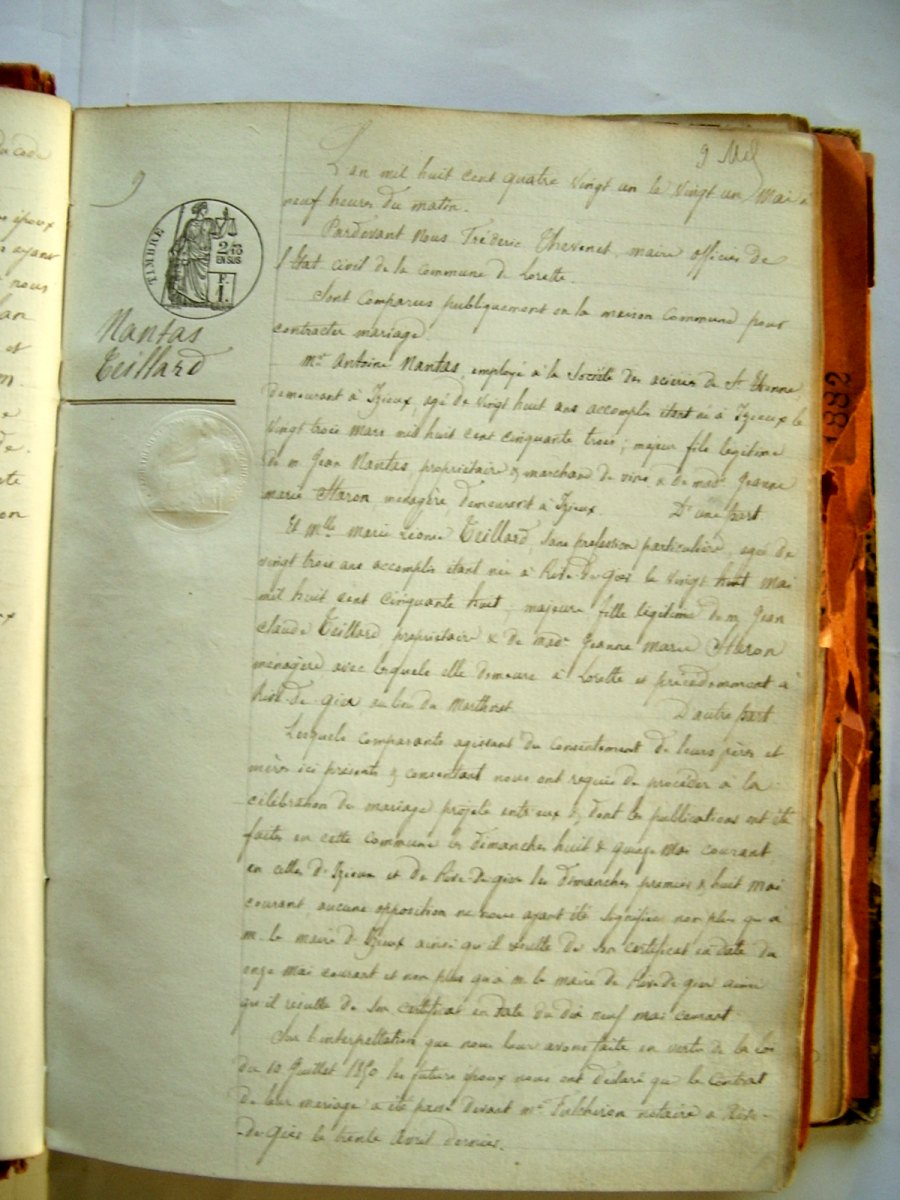 9 Mel
9
L'an mil huit cent quatre vingt un le vingt un Mai à
neuf heures du matin.
Pardevant Nous Fréderic Thevenet, maire officier de
l'Etat civil de la commune de Lorette.
Sont Comparus publiquement en la maison Commune pour
contracter mariage.
TIMBRE
2/10
EN SUS
F.
1.
Nantas
Teillard
Mr Antoine Nantas, employé à la Société des acieries de St Etienne
demeurant à Izieux, agé de vingt huit ans accomplis étant né à Izieux le
vingt trois Mars mil huit cent cinquante trois; majeur fils légitime
de m. Jean Nantas, propriétaire & marchand de vins & de made Jeanne
marie Staron, ménagère demeurant à Izieux. D'une part.
Et mlle Marie Léonie Teillard, sans profession particulière, agée de
vingt trois ans accomplis étant née à Rive de Gier le vingt huit Mai
mil huit cent cinquante huit, majeure fille légitime de m. Jean
Claude Teillard propriétaire & de made Jeanne Marie Staron
ménagère avec lesquels elle demeure à Lorette et précédemment à
Rive de Gier au lieu du D'autre part
Lesquels comparants agissant du consentement de leurs pères et
mères ici présents & consentant nous ont requis de procéder à la
célébration du mariage projeté entr'eux & dont les publications ont été
faites en cette commune les dimanches huit & quinze Mai courant,
en celles d'Izieux et de Rive de gier les dimanches premier & huit Mai
courant, aucune opposition ne nous ayant été signifiée non plus qu'à
m. le maire d'Izieux ainsi qu'il résulte de son certificat en date du
onze Mai courant et non plus qu'à m. le maire de Rive de gier ainsi
qu'il résulte de son certificat en date du dix neuf mai courant.
Sur l'interpellation que nous leur avons faite en vertu de la loi
du 10 Juillet 1850 les futurs époux nous ont déclaré que le Contrat
de leur mariage a été passé devant Me Fulchiron notaire à Rive-
-de-Gier le trente Avril dernier.
1882